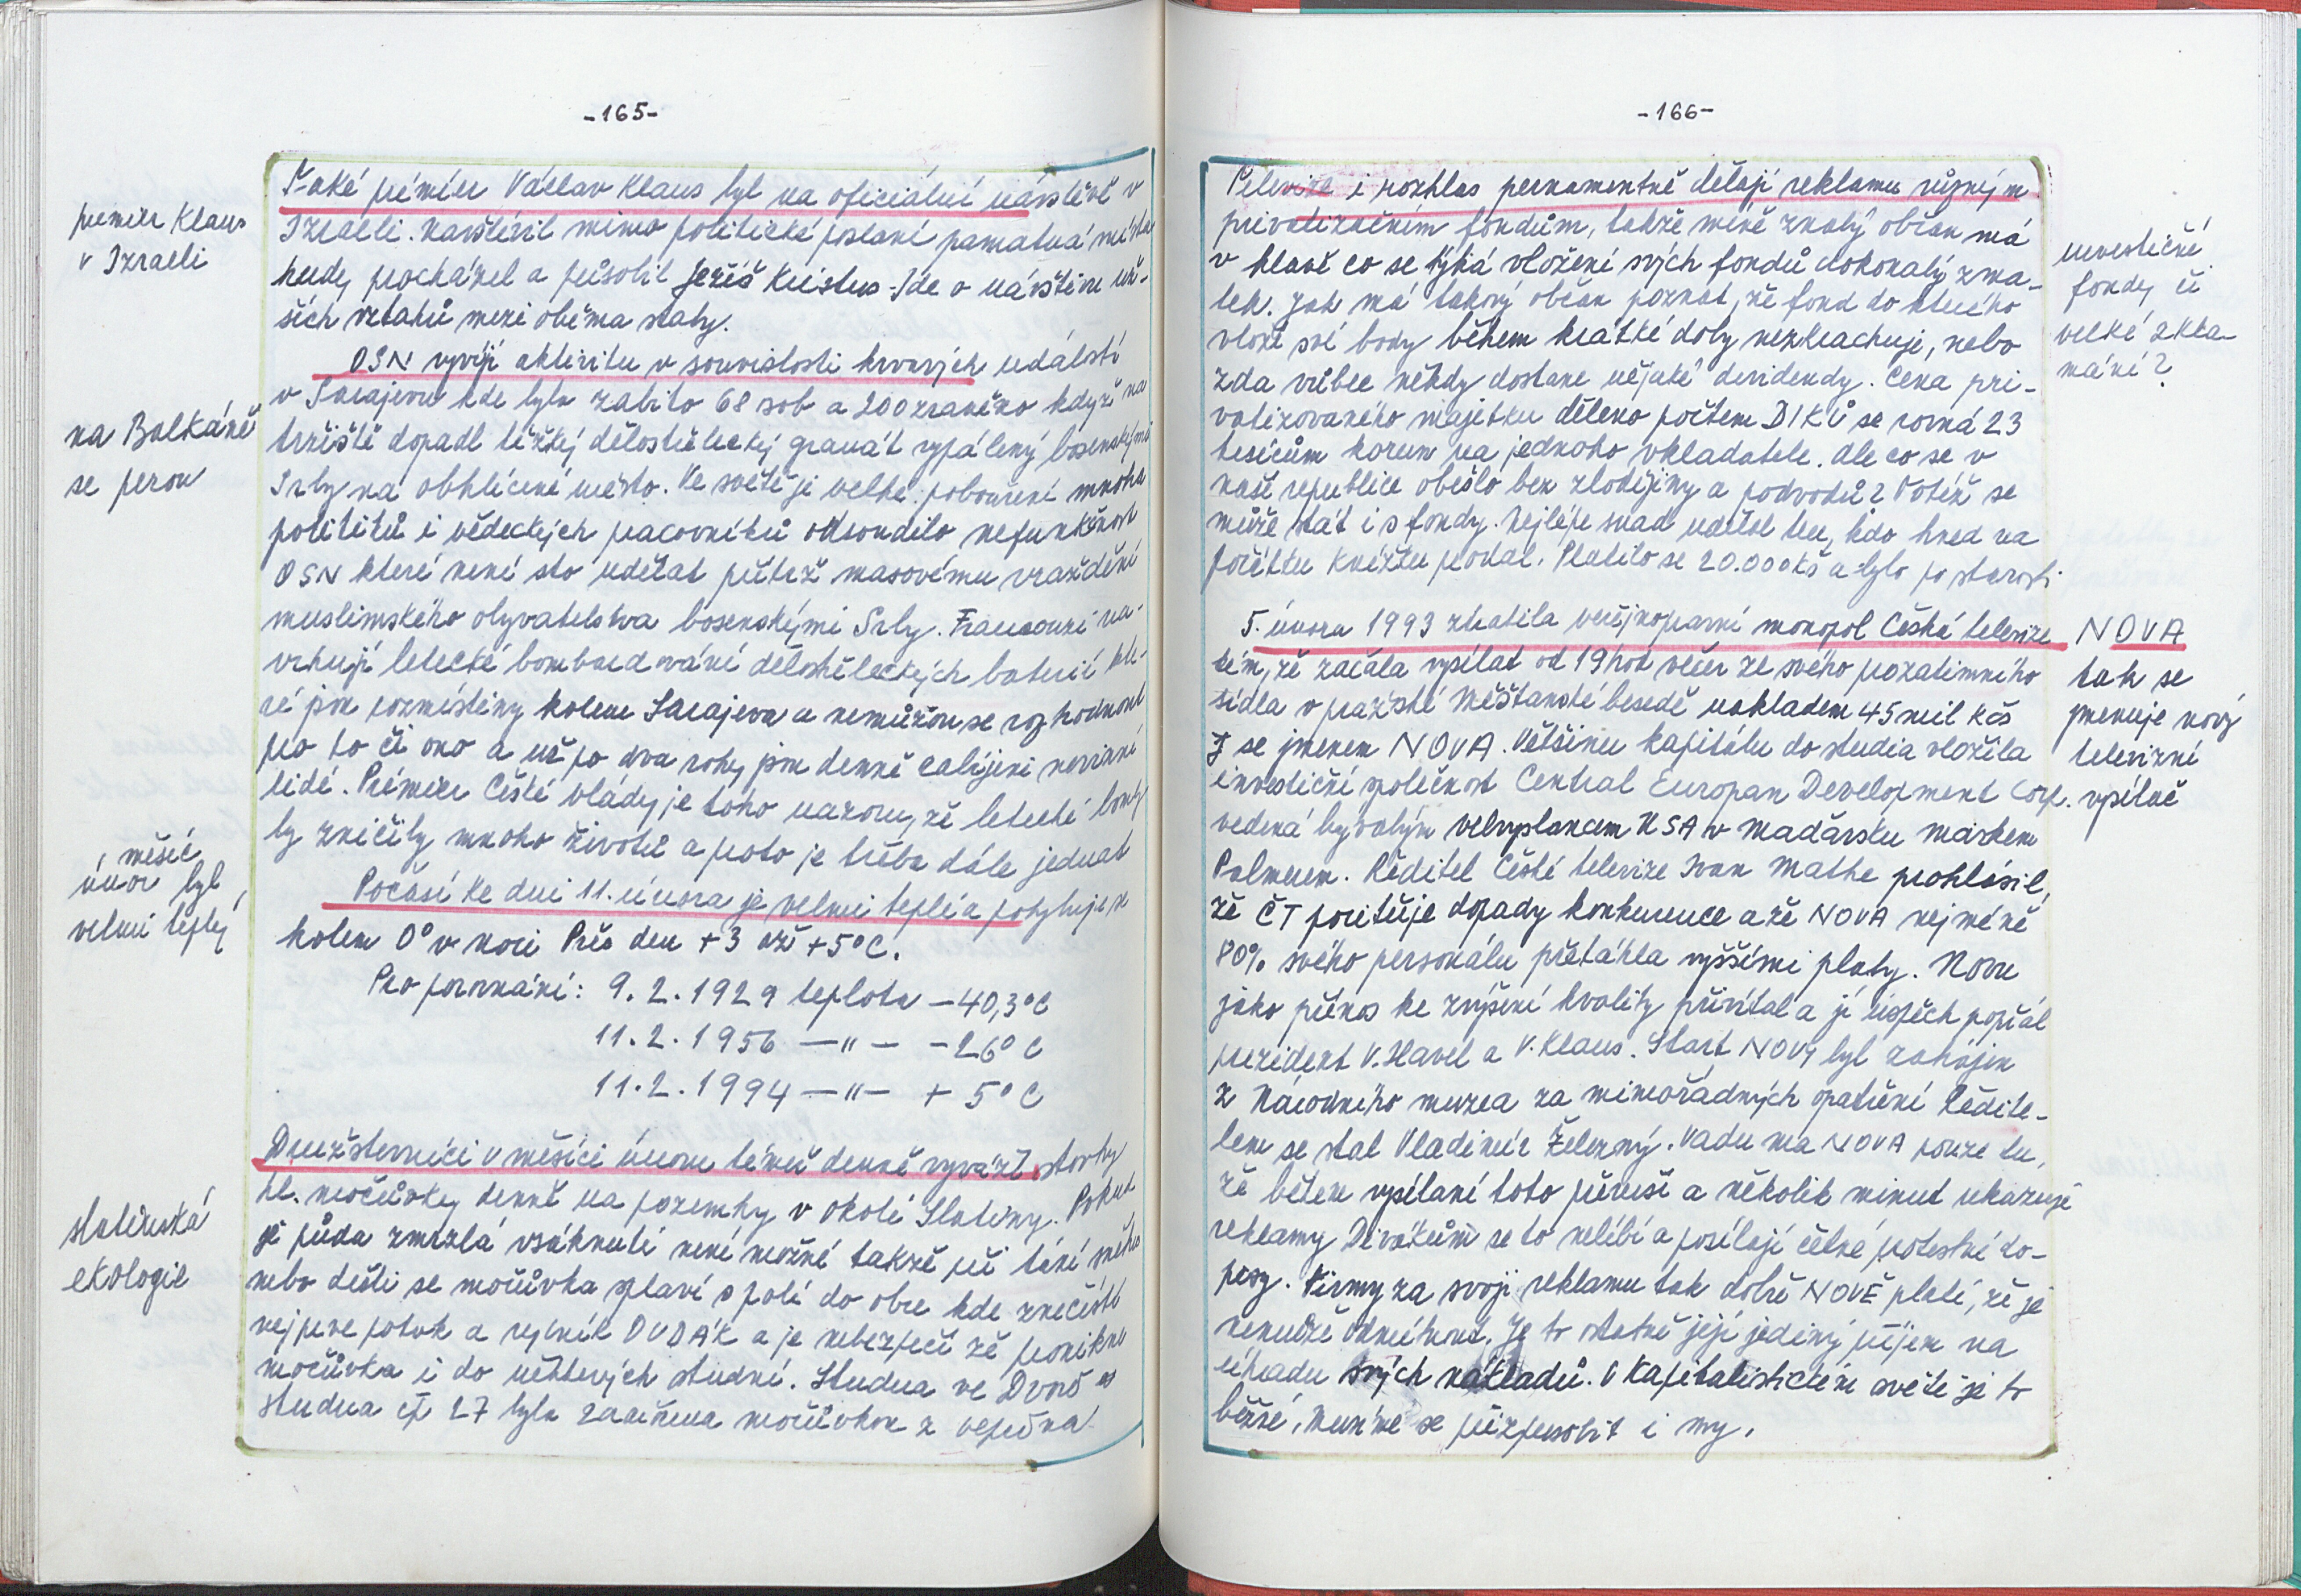 -165-
premier Klaus
v Izraeli
Také premiér Václav Klaus byl na oficiální návštěvě v
Izraeli. Navštívil mimo politické poslání památná místa
kudy procházel a působil Ježíš Kristus. Jde o návštěvu
ších vztahů mezi oběma státy.
na Balkáně
se perou
OSN vyvíjí aktivitu v souvislosti krvavých událostí
v Sarajevu kde bylo zabito 68 osob a 200 zraněno když na
tržiště dopadl těžký dělostřelecký granát vypálený bosenskými
Srby na obklíčené město. Ve světě je velké pobouření mnoho
politiků i vědeckých pracovníků odsoudilo nefunkčnost
OSN které není sto udělat přítrž masovému vraždění
muslimského obyvatelstva bosenskými Srby. Francouzi na-
vrhují letecké bombardování dělostřeleckých baterií kte-
ré jsou rozmístěny kolem Sarajeva a nemůžou se rozhodnout
pro to či ono a už po dva roky jsou denně zabíjeni nevinní
lidé. Premiér České vlády je toho názoru, že letecké bomby
by zničily mnoho životů a proto je třeba dále jednat
měsíc
únor byl
velmi teplý
Počasí ke dni 11. února je velmi teplé a pohybuje se
kolem 0° v noci Přes den +3 až +5°C.
Pro porovnání: 9.2.1929 teplota -40,3°C
11.2.1956 —"— -26°C
11.2.1994 —"— +5°C
slatinská
ekologie
Družstevníci v měsíci únoru téměř denně vyváží stovky
hl. močůvky denně na pozemky v okolí Slatiny. Pokud
je půda zmrzlá vsáknutí není možné takže při tání sněhu
nebo dešti se močůvka splaví s polí do obce kde znečistí
nejprve potok a rybník DUDÁK a je nebezpečí že pronikne
močůvka i do některých studní. Studna ve Dvoře
studna čp 27 byla zaneřena močůvkou z vepřína.
-166-
Televize i rozhlas pernamentně dělají reklamu různým
privatizačním fondům, takže méně znalý občan má
v hlavě co se týká vložení svých fondů dokonalý zma-
tek. Jak má takový občan poznat, že fond do kterého
vložil své body během krátké doby nezkrachuje, nebo
zda vůbec někdy dostane nějaké devidendy. Cena pri-
vatizovaného majetku děleno počtem DIKů se rovná 23
tisícům korun na jednoho vkladatele. Ale co se v
naší republice obešlo bez zlodějiny a podvodů? Totéž se
může stát i s fondy. Nejlépe snad udělal ten, kdo hned na
počátku knížku prodal. Platilo se 20.000 Kč a bylo po starosti.
investiční
fondy či
velké zkla-
mání?
5. února 1993 ztratila veřejnoprávní monopol Česká televize
tím, že začala vysílat od 19 hod večer ze svého prozatímního
sídla v pražské Měšťanské besedě nákladem 45 mil Kčs
TV se jmenem NOVA. Většinu kapitálu do studia vložila
investiční společnost Central Europan Development Corp.
vedená bývalým velvyslancem USA v Maďarsku Markem
Palmerem. Ředitel České televize Ivan Mathe prohlásil,
že ČT pociťuje dopady konkurence a že NOVA nejméně
80% svého personálu přetáhla vyššími platy. Novu
jako přínos ke zvýšení kvality přivítal a jí úspěch popřál
prezident V. Havel a V. Klaus. Start NOVY byl zahájen
z Národního muzea za mimořádných opatření Ředite-
lem se stal Vladimír Železný. Vadu má NOVA pouze tu,
že během vysílaní toto přeruší a několik minut ukazuje
reklamy Divákům se to nelíbí a posílají četné protestní do-
pisy. Firmy za svoji reklamu tak dobře NOVĚ platí, že je
nemůže odmítnout. Je to ostatně její jediný příjem na
úhradu svých nákladů. V kapitalistickém světě je to
běžné. Musíme se přizpusobit i my.
NOVA
tak se
jmenuje nový
televizní
vysílač